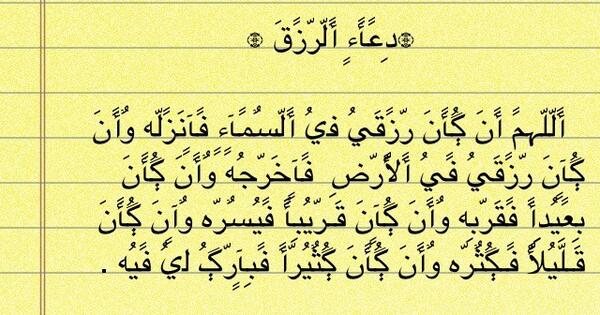 دعاء الرزق
اللهم ان كان رزقي في السماء فانزله وان
كان رزقي في الأرض فاخرجه وان كان
بعيدا فقربه وان كان قريبا فيسره وان كان
قليلا فكثره وان كان كثيرا فبارك لي فيه .